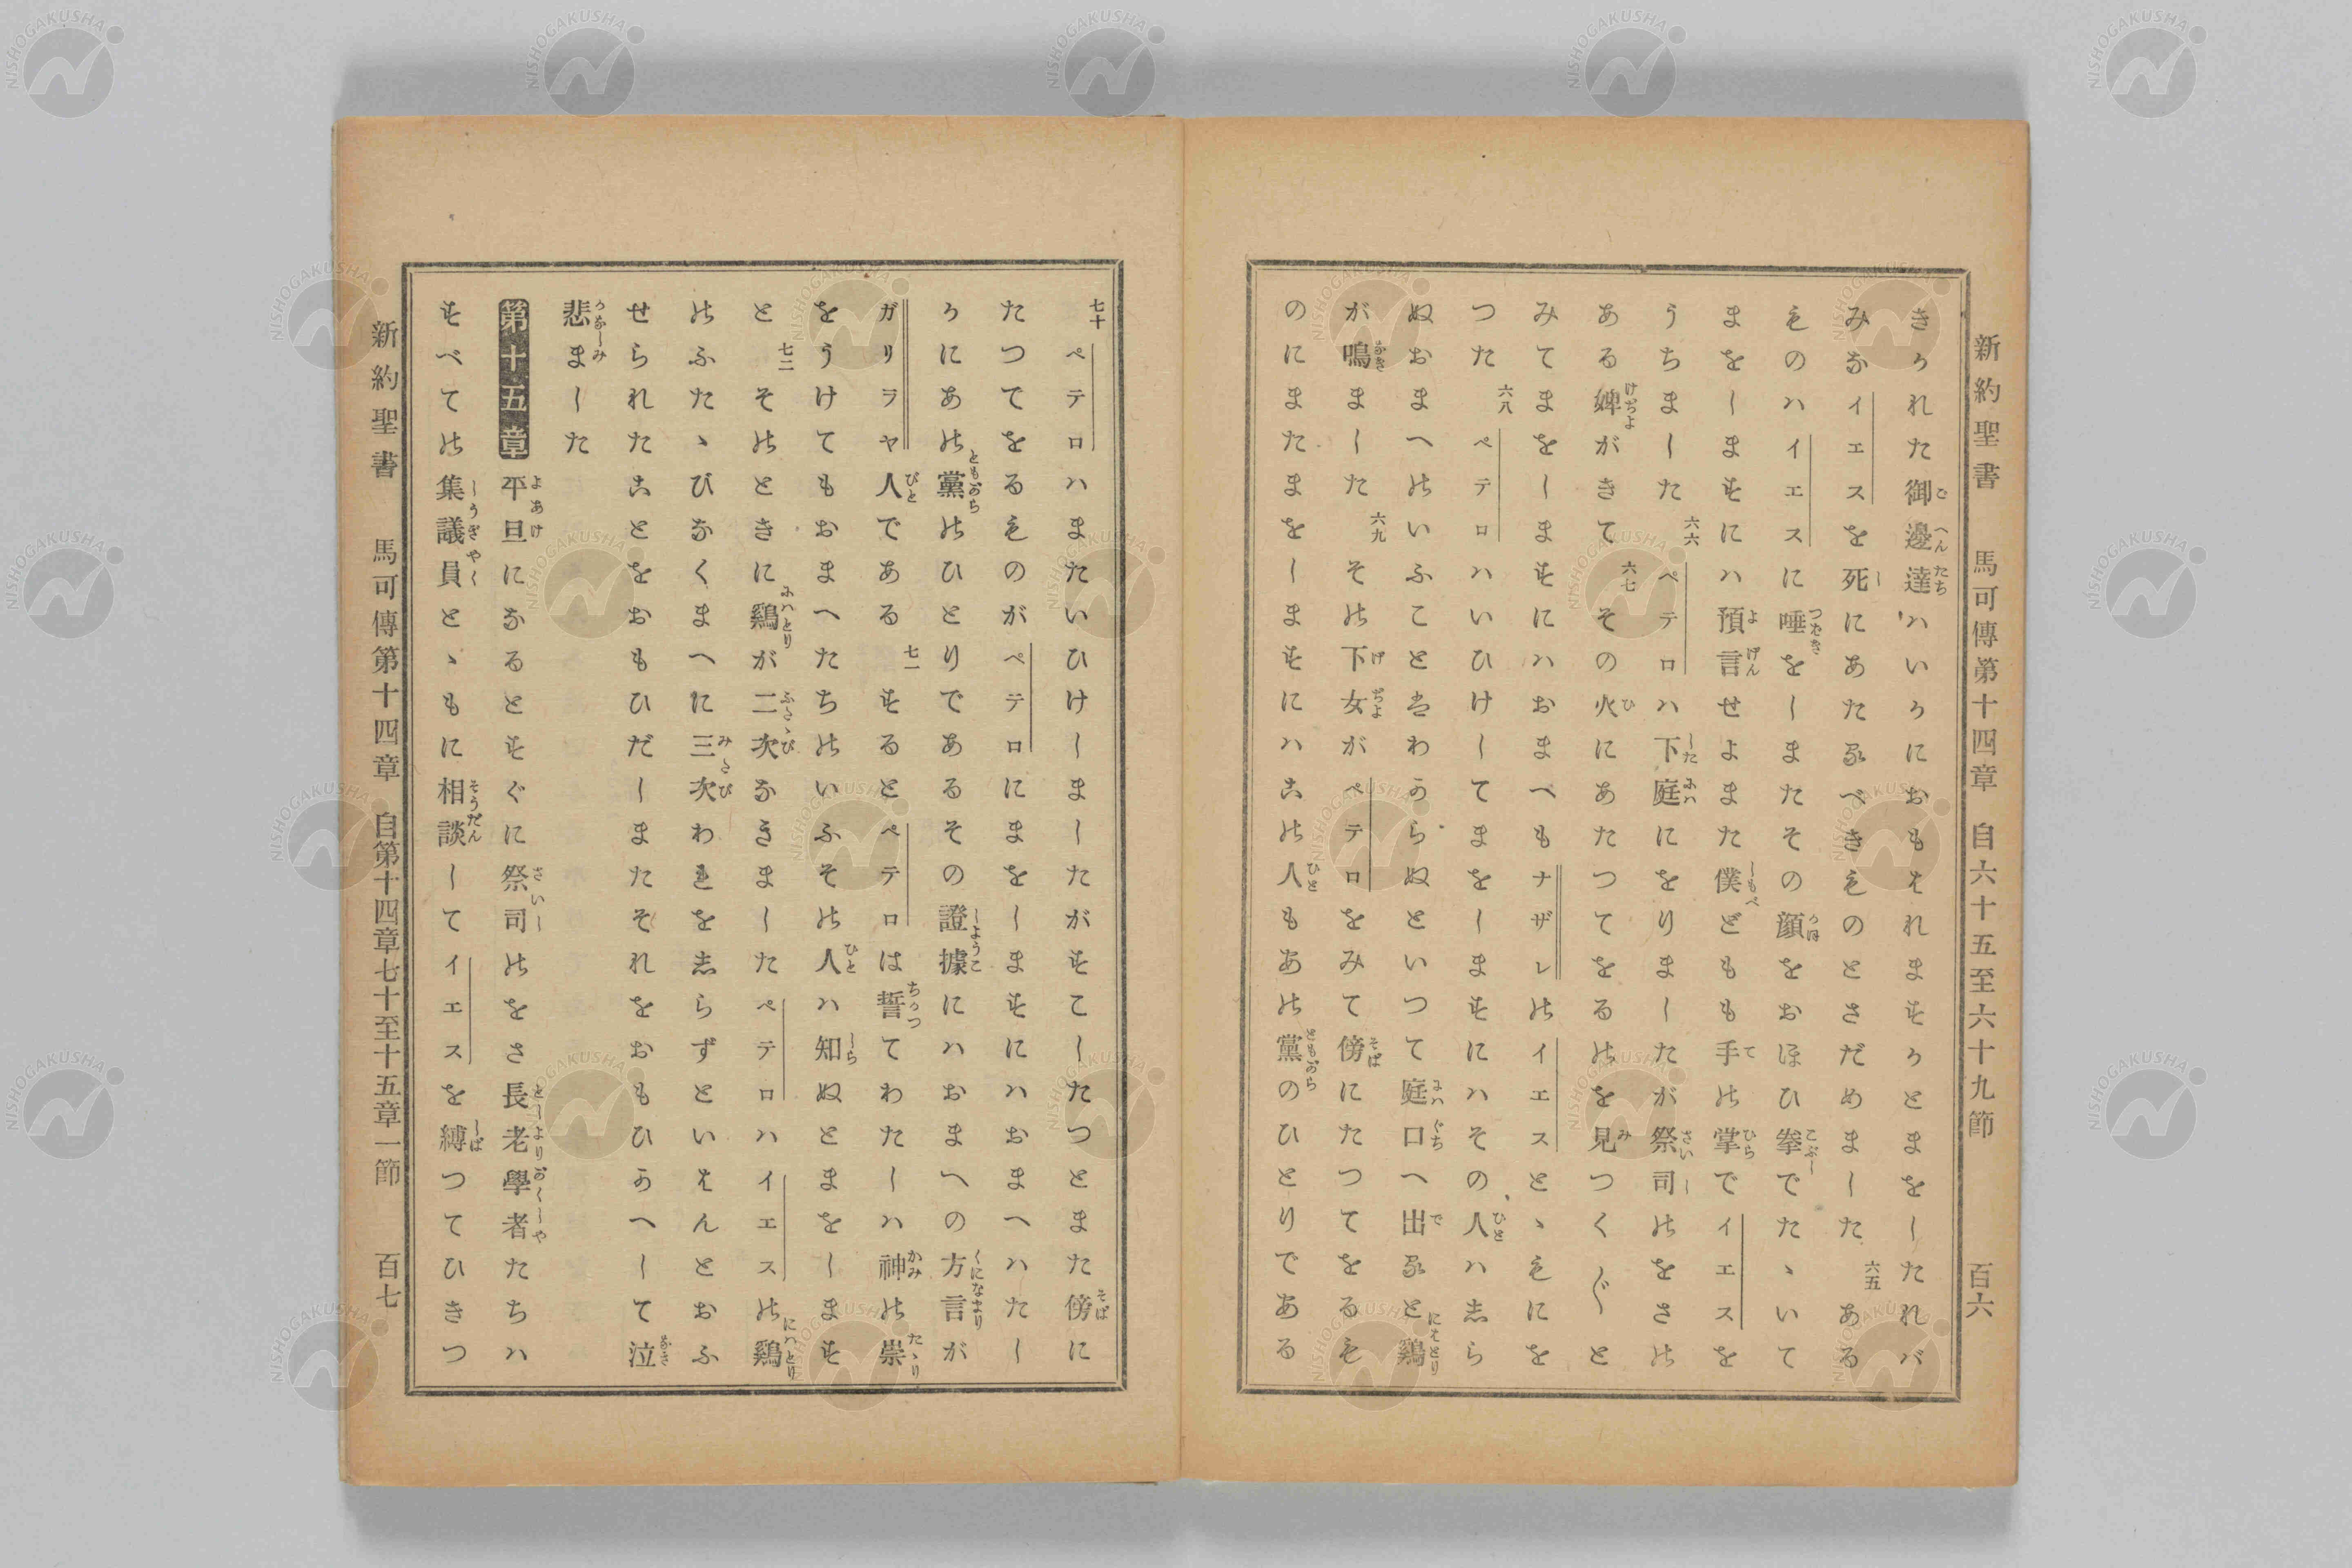 新約聖書 馬可傳第十四章 自六十五至六十九節 百六
きかれた御邊達ハいかにおもはれますかとまをしたれバ
みなイエスを死にあたるべきものとさだめました 六五 ある
ものハイエスに唾をしまたその顔をおほひ拳でたゝいて
まをしますにハ預言せよまた僕どもも手の掌でイエスを
うちました 六六 ペテロハ下庭にをりましたが祭司のをさの
ある婢がきて 六七 その火にあたつてをるのを見つく〴〵と
みてまをしますにハおまへもナザレのイエスとゝもにを
つた 六八 ペテロハいひけしてまをしますにハその人ハしら
ぬおまへのいふことはわからぬといつて庭口へ出ると鶏
が鳴ました 六九 その下女がペテロをみて傍にたつてをるも
のにまたまをしますにハこの人もあの黨のひとりである
七十 ペテロハまたいひけしましたがすこしたつとまた傍に
たつてをるものがペテロにまをしますにハおまへハたし
かにあの黨のひとりであるその證據にハおまへの方言が
ガリヲヤ人である 七一 するとペテロは誓てわたしハ神の祟
をうけてもおまへたちのいふその人ハ知ぬとまをします
と 七二 そのときに鶏が二次なきましたペテロハイエスの鶏
のふたゝびなくまへに三次われをしらずといはんとおふ
せられたことをおもひだしまたそれをおもひかへして泣
悲ました
第十五章 平旦になるとすぐに祭司のをさ長老學者たちハ
すべての集議員とゝもに相談してイエスを縛つてひきつ
新約聖書 馬可傳第十四章 自第十四章七十至十五章一節 百七